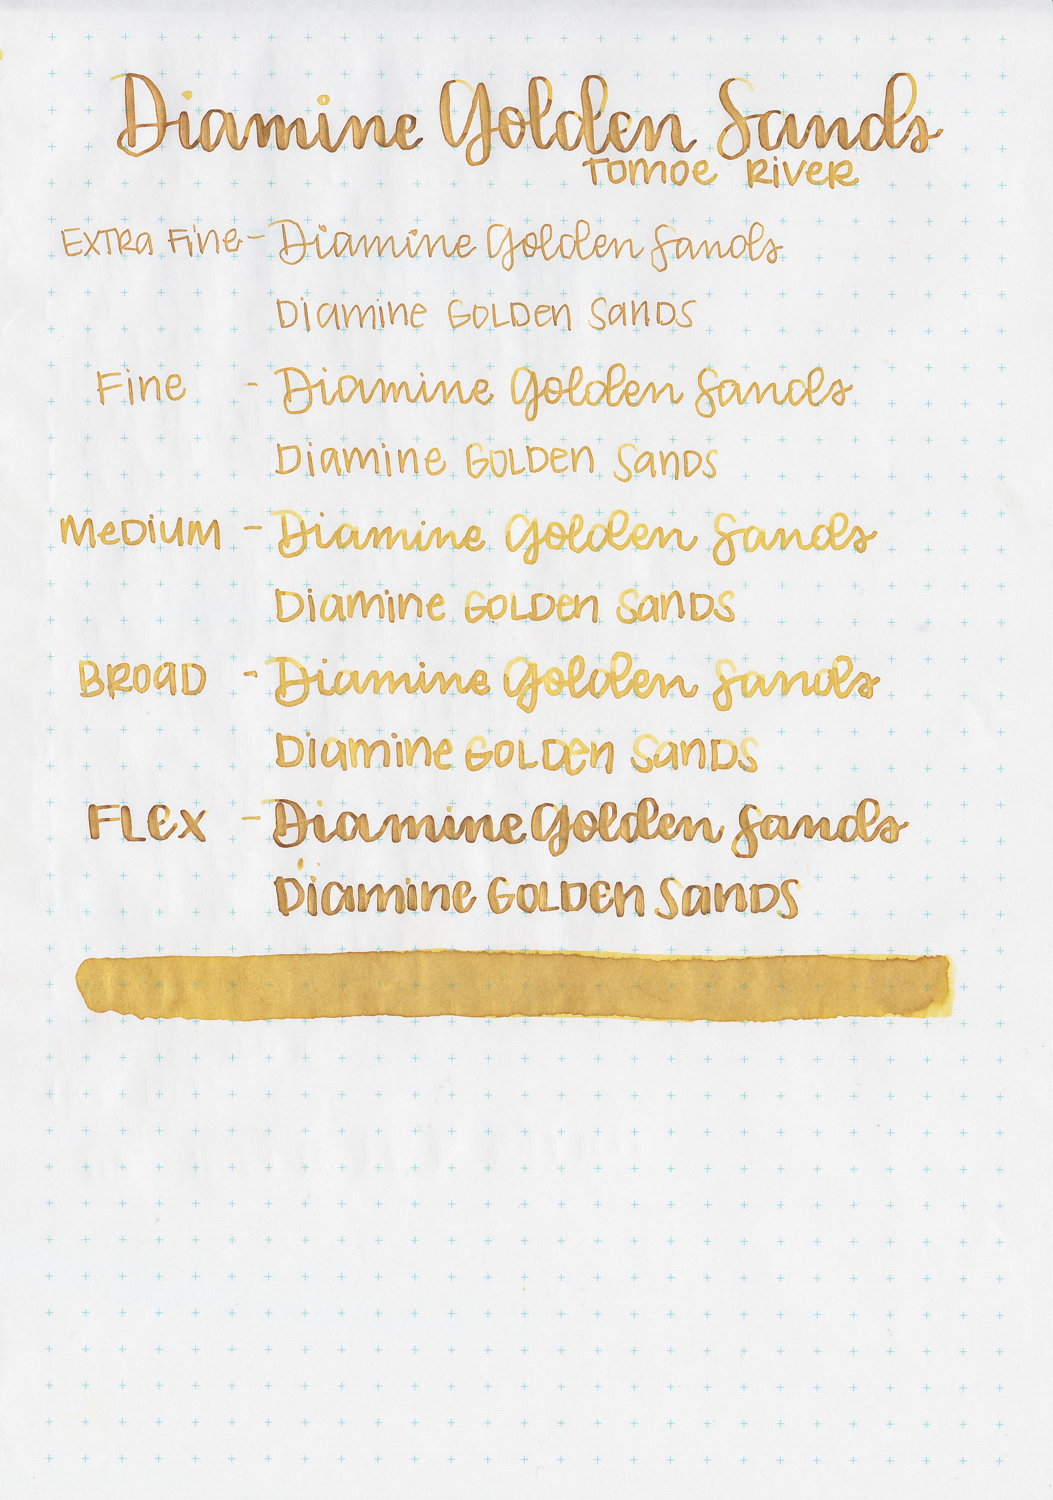 Diamine Golden Sands
Tomoe River
Extra Fine - Diamine Golden Sands
Diamine Golden Sands
Fine - Diamine Golden Sands
Diamine Golden Sands
Medium - Diamine Golden Sands
Diamine Golden Sands
Broad - Diamine Golden Sands
Diamine Golden Sands
Flex - Diamine Golden Sands
Diamine Golden Sands